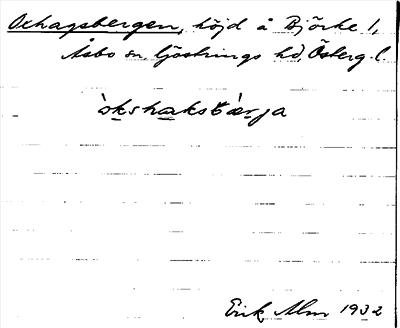 Oxhagsbergen, höjd å Björke 1,
Åsbo sn, Göstrings hd, Österg. l.
òkshaksbæ̀rja
Erik Alm 1932